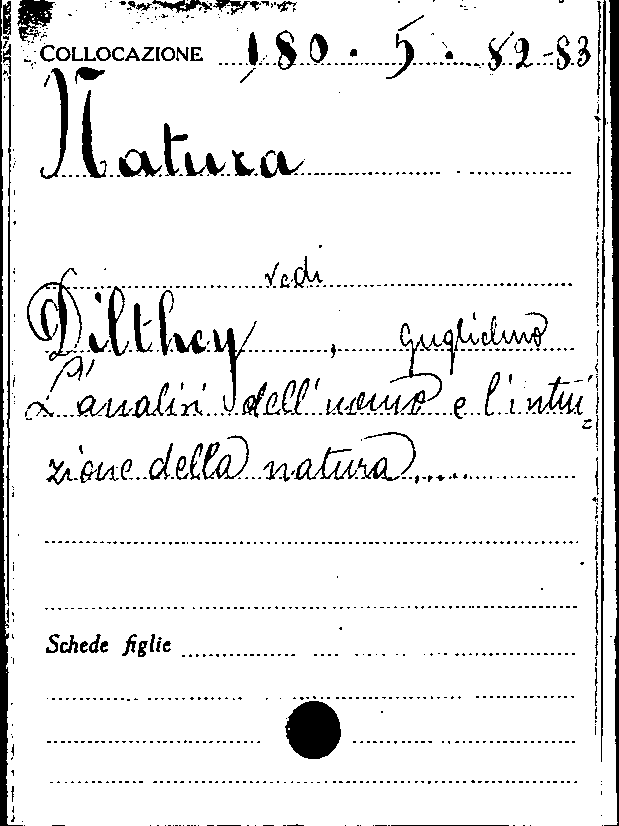 COLLOCAZIONE 180.5.82-83
Natura
vedi
Dilthey, Guglielmo
L'analisi dell'uomo e l'intui=
zione della natura.....
Schede figlie